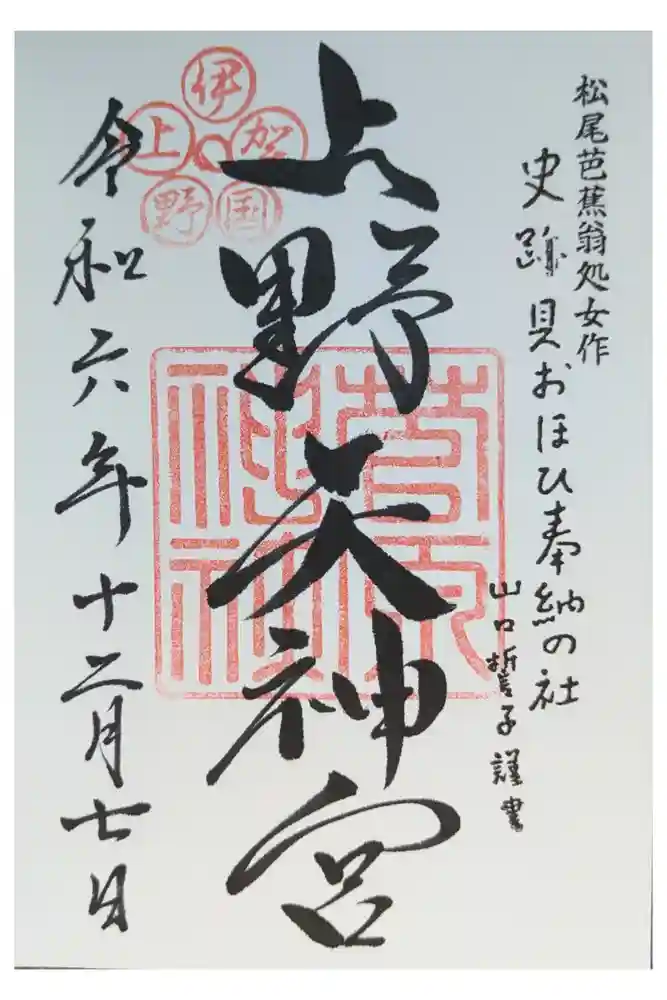 松尾芭蕉翁処女作
史跡 貝おほひ奉納の社
山口誓子謹書
上野天神宮
伊賀国上野
令和六年十二月七日